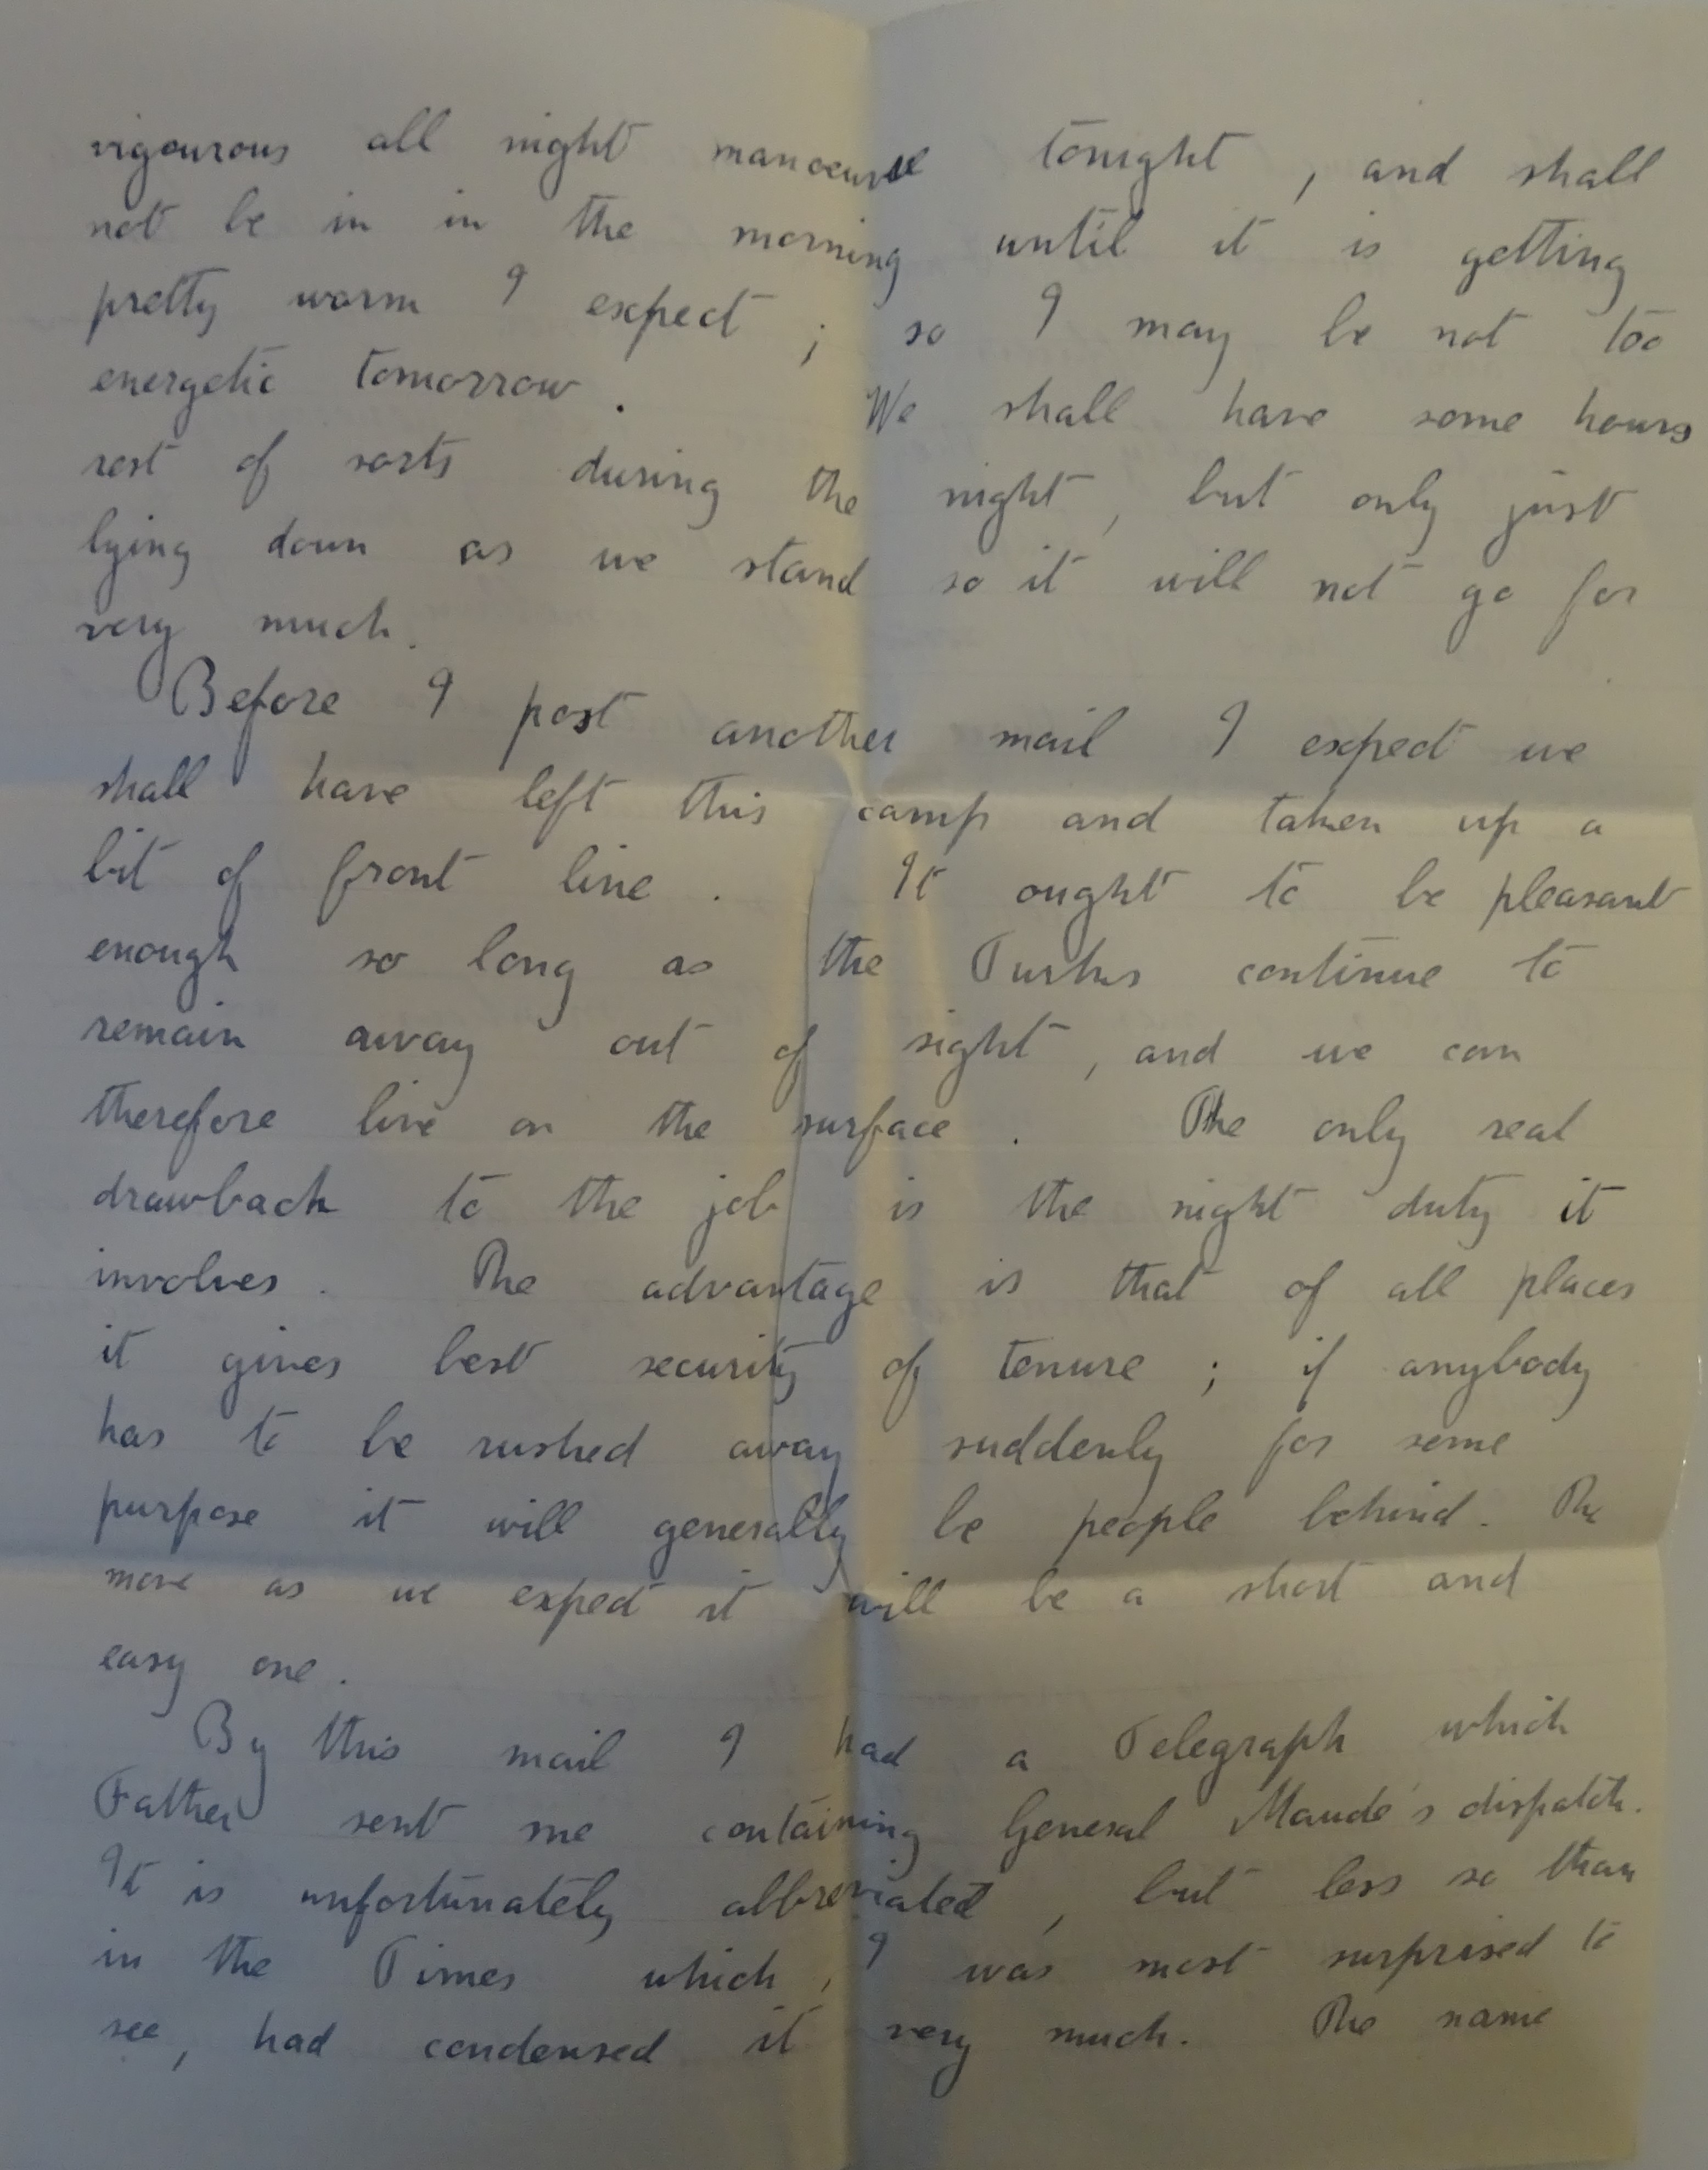 vigourous all night manoeuvre tonight, and shall
not be in in the morning until it is getting
pretty warm I expect; so I may be not too
energetic tomorrow. We shall have some hours
rest of sorts during the night, but only just
lying down as we stand so it will not go for
very much.
Before I post another mail I expect we
shall have left this camp and taken up a
bit of front line. It ought to be pleasant
enough so long as the Turks continue to
remain away out of sight, and we can
therefore live on the surface. The only real
drawback to the job is the night duty it
involves. The advantage is that of all places
it gives best security of tenure; if anybody
has to be rushed away suddenly for some
purpose it will generally be people behind. The
move as we expect it will be a short and
easy one.
By this mail I had a Telegraph which
Father sent me containing General Maude's dispatch.
It is unfortunately abbreviated, but less so than
in the Times which, I was most surprised to
see, had condensed it very much. The name